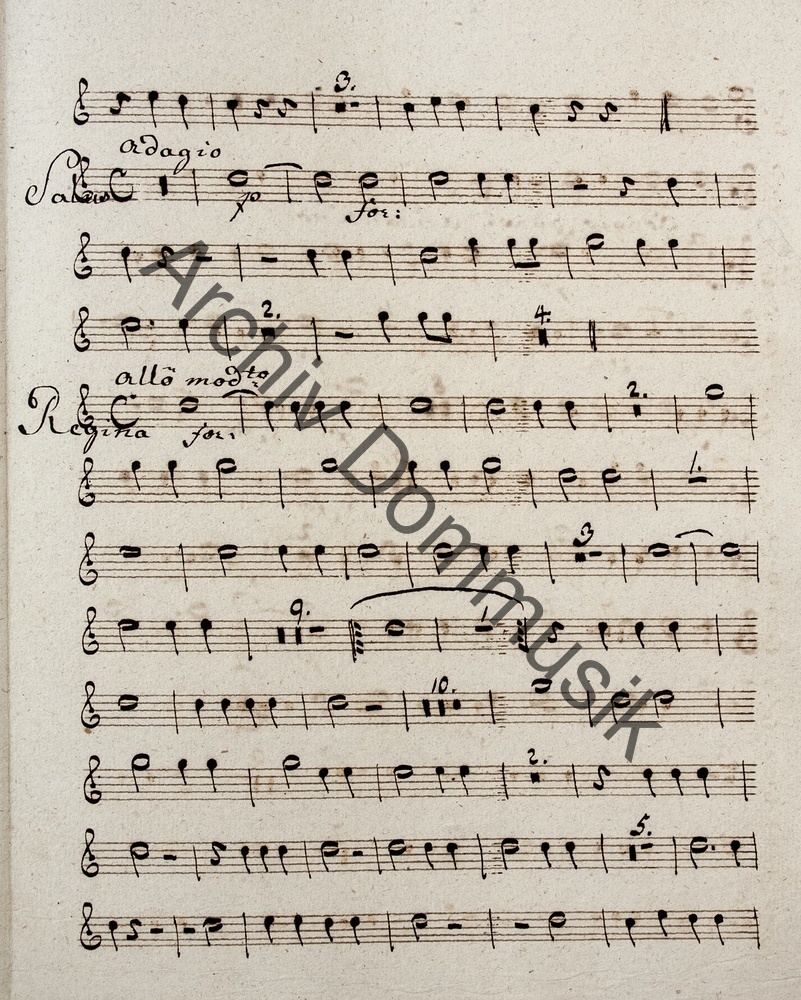 3.
adagio
Salve
p
for:
2.
4.
allo modto
Regina
for:
2.
1.
3
9.
1
10.
2.
5.
Archiv Dommusik